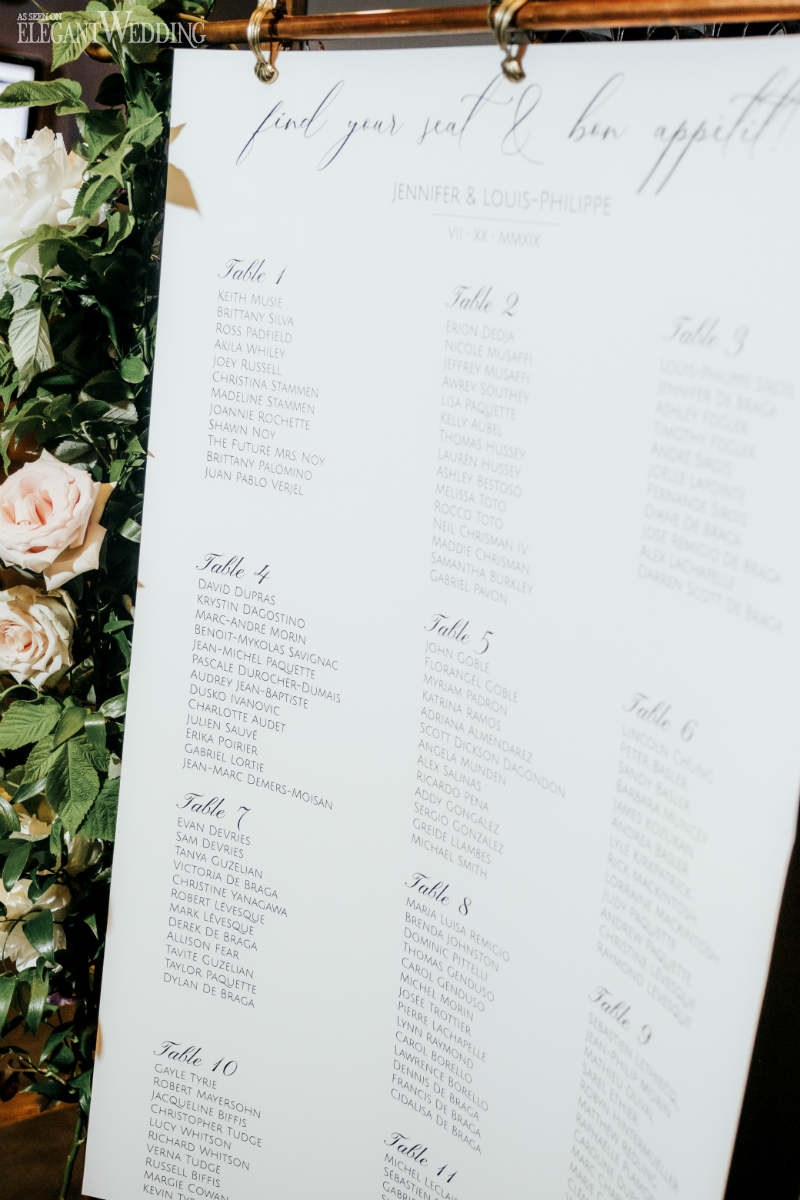 AS SEEN ON
ELEGANTWEDDING
find your seat & bon appétit!
JENNIFER & LOUIS-PHILIPPE
VII · XX · MMXIX
Table 1
KEITH MUSIE
BRITTANY SILVA
ROSS PADFIELD
AKILA WHILEY
JOEY RUSSELL
CHRISTINA STAMMEN
MADELINE STAMMEN
JOANNIE ROCHETTE
SHAWN NOY
THE FUTURE MRS. NOY
BRITTANY PALOMINO
JUAN PABLO VERJEL
Table 2
ERION DEDJA
NICOLE MUSAFFI
JEFFREY MUSAFFI
AWREY SOUTHEY
LISA PAQUETTE
KELLY AUBEL
THOMAS HUSSEY
LAUREN HUSSEY
ASHLEY BESTOSO
MELISSA TOTO
ROCCO TOTO
NEIL CHRISMAN IV
MADDIE CHRISMAN
SAMANTHA BURKLEY
GABRIEL PAVON
Table 3
LOUIS-PHILIPPE
JENNIFER DE BRAGA
ASHLEY FOGLER
TIMOTHY FOGLER
JOELLE LAPOINTE
FERNANDE
DIANE DE BRAGA
JOSE REMIGIO DE BRAGA
ALEX LACHAPELLE
SCOTT DE BRAGA
Table 4
DAVID DUPRAS
KRYSTIN D'AGOSTINO
MARC-ANDRÉ MORIN
BENOIT-MYKOLAS SAVIGNAC
JEAN-MICHEL PAQUETTE
PASCALE DUROCHER-DUMAIS
AUDREY JEAN-BAPTISTE
DUSKO IVANOVIC
CHARLOTTE AUDET
JULIEN SAUVÉ
ERIKA POIRIER
GABRIEL LORTIE
JEAN-MARC DEMERS-MOISAN
Table 5
JOHN GOBLE
FLORANGEL GOBLE
MYRIAM PADRON
KATRINA RAMOS
ADRIANA ALMENDAREZ
SCOTT DICKSON DAGONDON
ANGELA MUNDEN
ALEX SALINAS
RICARDO PENA
ADDY GONGALEZ
SERGIO GONZALEZ
GREIDE LLAMBES
MICHAEL SMITH
Table 6
LINCOLN
PETER BASLER
SANDY BASLER
BARBARA
JAMES
ANDREA BARAN
RICK MACKINTOSH
LORRAINE MACKINTOSH
ANDREW PAQUETTE
LEVESQUE
RAYMOND LEVESQUE
Table 7
EVAN DEVRIES
SAM DEVRIES
TANYA GUZELIAN
VICTORIA DE BRAGA
CHRISTINE YANAGAWA
ROBERT LÉVESQUE
MARK LÉVESQUE
DEREK DE BRAGA
ALLISON FEAR
TAVITE GUZELIAN
TAYLOR PAQUETTE
DYLAN DE BRAGA
Table 8
MARIA LUISA REMIGIO
BRENDA JOHNSTON
DOMINIC PITTELLI
THOMAS GENDUSO
CAROL GENDUSO
MICHEL MORIN
JOSÉE TROTTIER
PIERRE LACHAPELLE
LYNN RAYMOND
CAROL BORELLO
LAWRENCE BORELLO
DENNIS DE BRAGA
FRANCIS DE BRAGA
CIDALISA DE BRAGA
Table 9
Table 10
GAYLE TYRIE
ROBERT MAYERSOHN
JACQUELINE BIFFIS
CHRISTOPHER TUDGE
LUCY WHITSON
RICHARD WHITSON
VERNA TUDGE
RUSSELL BIFFIS
MARGIE COWAN
KEVIN
Table 11
MICHEL LECLAI
SÉBASTIEN